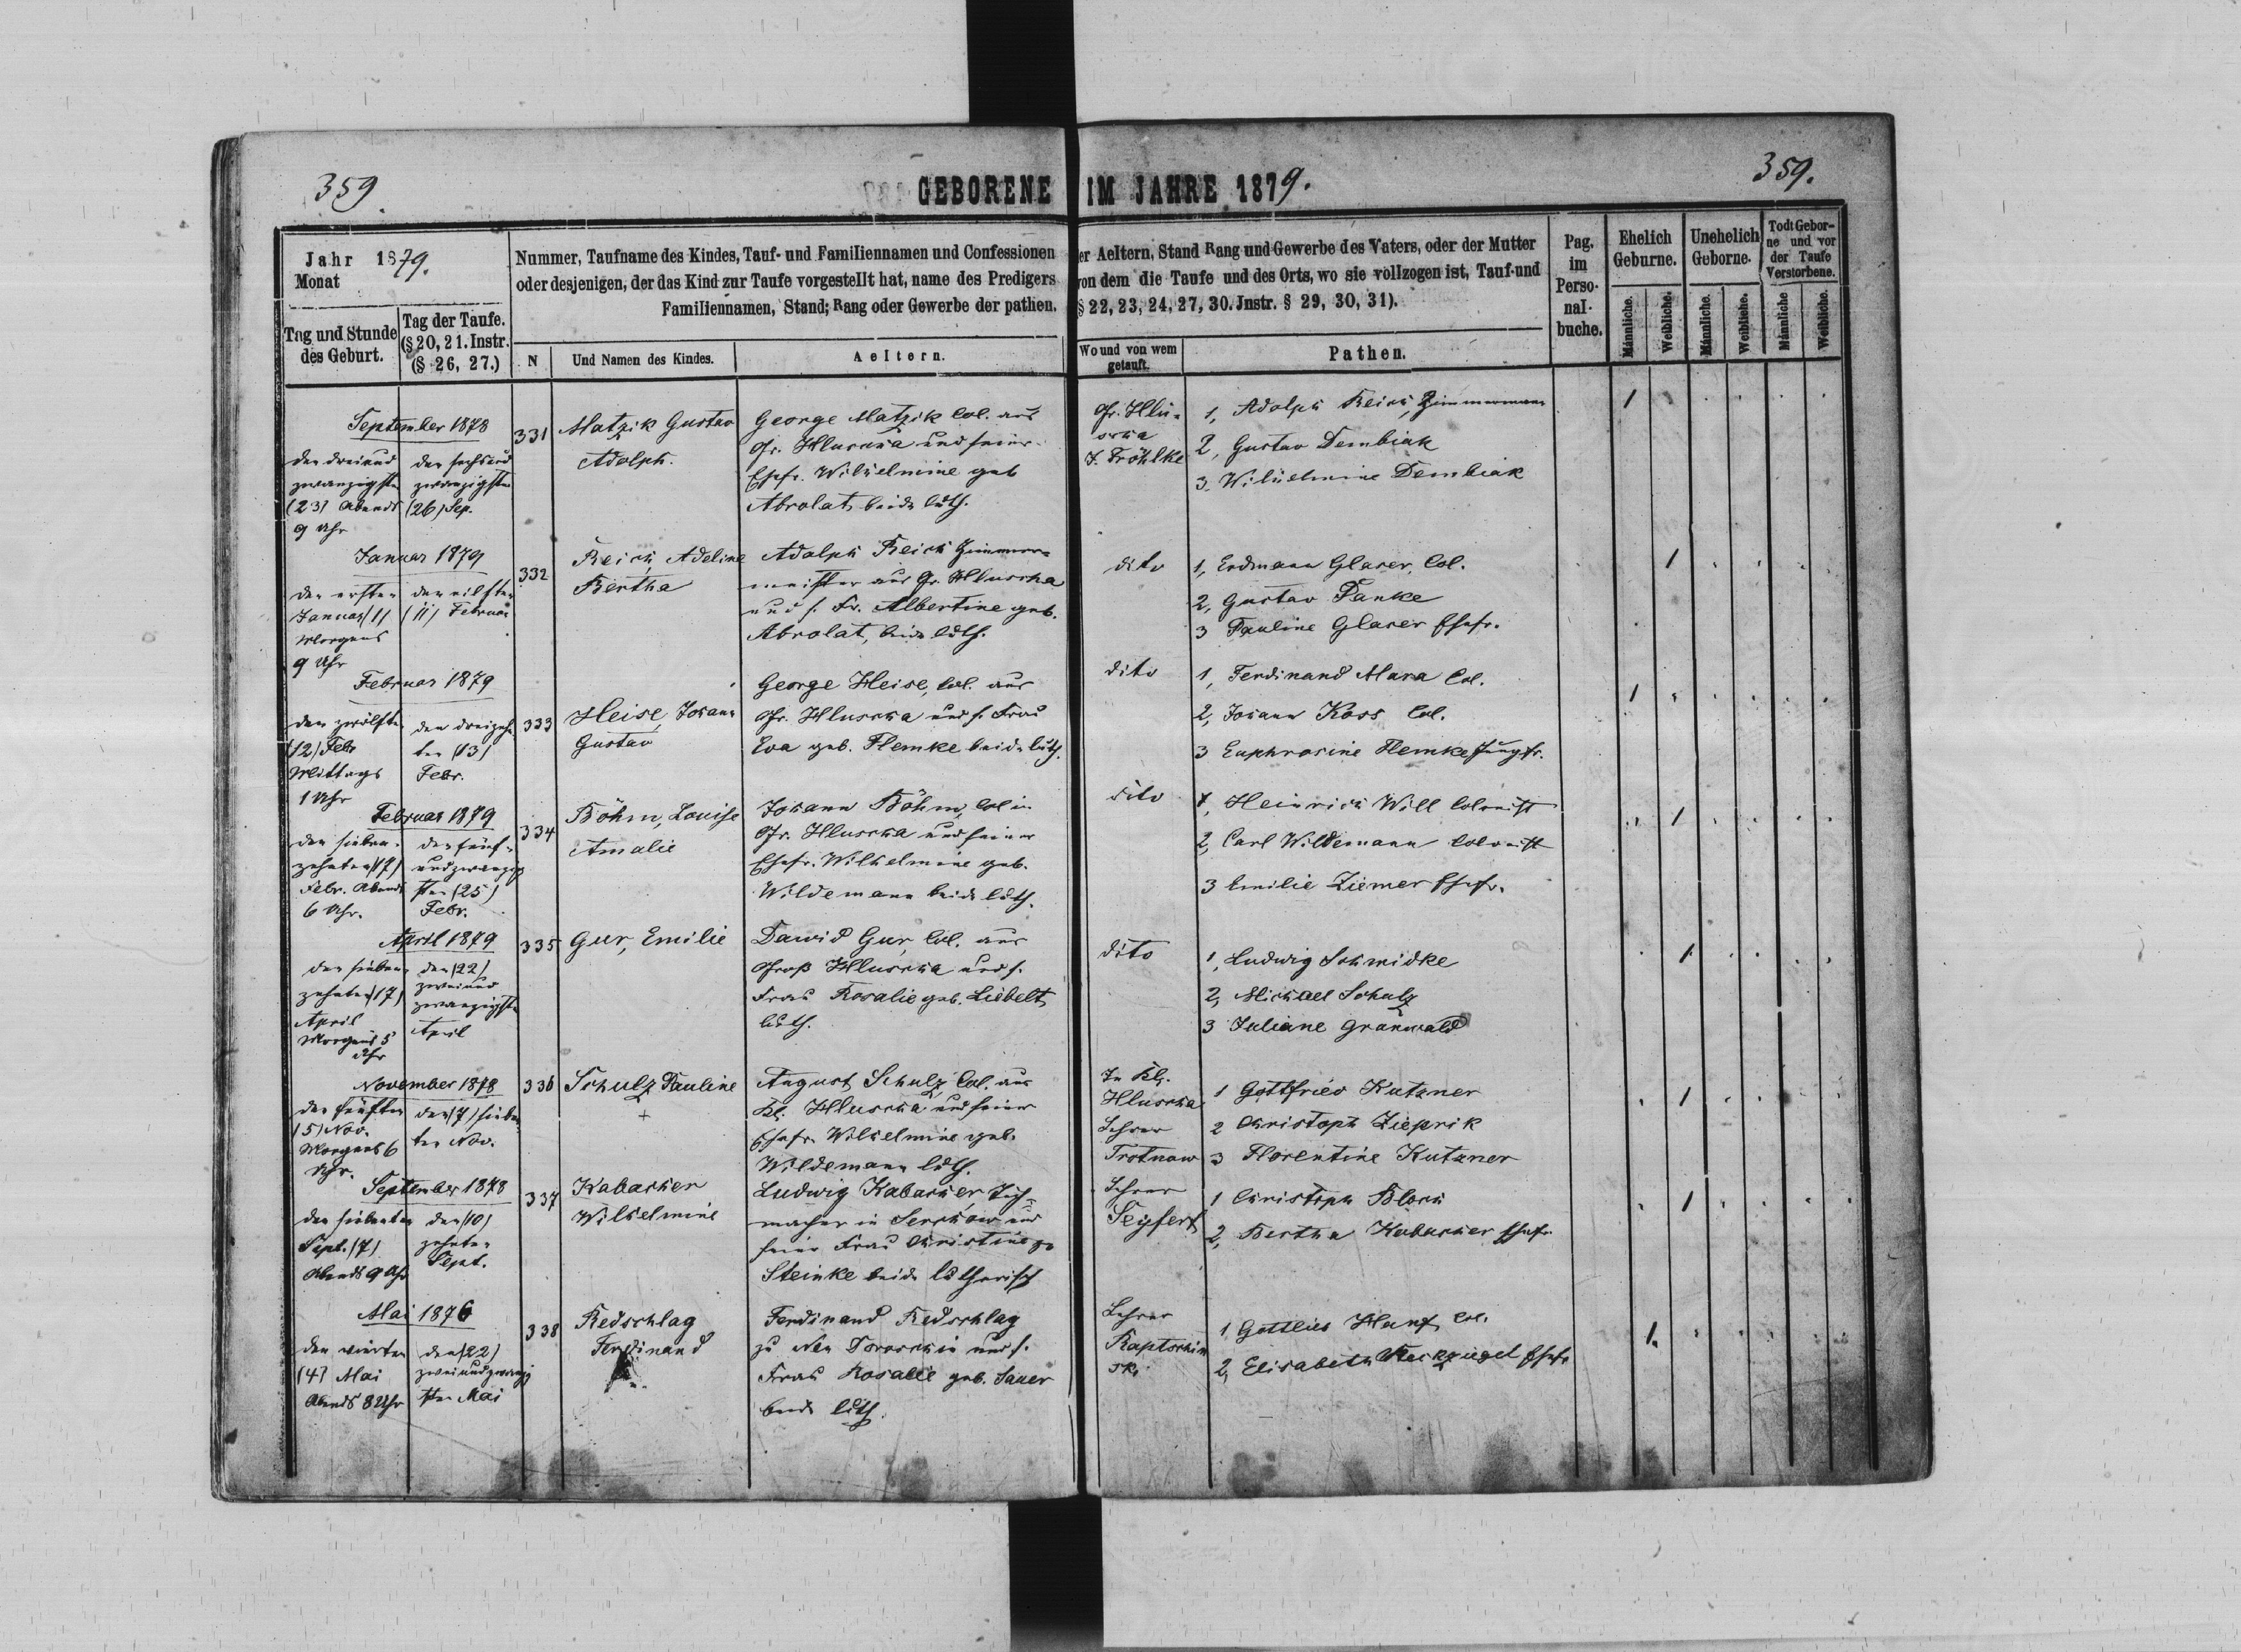 359.
GEBORENE IM JAHRE 1879.
359.
Jahr 1879.
Monat
Tag und Stunde
des Geburt.
Tag der Taufe.
(§ 20, 21. Instr.
(§ 26, 27.)
Nummer, Taufname des Kindes, Tauf- und Familiennamen und Confessionen
oder desjenigen, der das Kind zur Taufe vorgestellt hat, name des Predigers
Familiennamen, Stand; Rang oder Gewerbe der pathen.
N
Und Namen des Kindes.
Aeltern.
er Aeltern, Stand Rang und Gewerbe des Vaters, oder der Mutter
von dem die Taufe und des Orts, wo sie vollzogen ist, Tauf-und
§ 22, 23, 24, 27, 30. Jnstr. § 29, 30, 31).
Wo und von wem
getauft.
Pathen.
Pag.
im
Perso-
nal-
buche.
Ehelich
Geburne.
Unehelich
Geborne.
Todt Gebor-
ne und vor
der Taufe
Verstorbene.
Männliche.
Weibliche.
Männliche.
Weibliche.
Männliche
Weibliche.
September 1878
den dreiund
zwanzigsten
(23) Abends
9 Uhr
den sechsund
zwanzigsten
(26) Sep.
331
Matzik Gustav
Adolph.
George Matzik Col. aus
Gr. Hluscha und seiner
Ehefr. Wilhelmine geb
Abrolat, beide luth.
Gr. Hlu-
scha
J. Fröhlke
1, Adolph Reich, Zimmermann
2, Gustav Dembiak
3. Wilhelmine Dembiak
1
Januar 1879
den ersten
Januar (1)
Morgens
9 Uhr
den eilften
(11) Februar
332
Reich, Adeline
Bertha
Adolph Reich Zimmer-
meister aus Gr. Hluscha
und s. Fr. Albertine geb.
Abrolat, beide luth.
dito
1, Erdmann Glaser, Col.
2, Gustav Panke
3 Pauline Glaser Ehefr.
1
Februar 1879
den zwölften
(12) Febr
Mittags
1 Uhr
den dreizehn
ten (13)
Febr.
333
Heise, Johann
Gustav
George Heise, Col. aus
Gr. Hluscha und s. Frau
Eva geb. Flemke beide luth.
dito
1, Ferdinand Mara Col.
2, Johann Koss Col.
3 Euphrosine Flemke Jungfr.
1
Februar 1879
den sieben-
zehnten (17)
Febr. Abends
6 Uhr.
den fünf-
undzwanzig
sten (25)
Febr.
334
Böhm, Louise
Amalie
Johann Böhm, Col in
Gr. Hluscha und seiner
Ehefr. Wilhelmine geb.
Wildemann beide luth.
dito
1, Heinrich Will Colonist
2, Carl Wildemann Colonist
3 Emilie Ziemer Ehefr.
1
April 1879
den sieben
zehnten (17)
April
Morgens 5
Uhr
den (22)
zweiund
zwanzigsten
April
335
Gur, Emilie
Dawid Gur, Col. aus
Groß Hluscha und s.
Frau Rosalie geb. Liebelt,
luth.
dito
1, Ludwig Schmidke
2, Michael Schulz
3 Juliane Grünwald
1
November 1878
den fünften
(5) Nov.
Morgens 6
Uhr.
den (7) sieben
ten Nov.
336
Schulz Pauline
+
August Schulz Col. aus
Kl. Hluscha und seiner
Ehefr. Wilhelmine geb.
Wildemann luth.
In Kl.
Hluscha
Lehrer
Trotnow
1 Gottfried Kutzner
2 Christoph Zieprik
3 Florentine Kutzner
1
September 1878
den siebenten
Sept. (7)
Abends 9 Uhr
den (10)
zehnten
Sept.
337
Kabacker
Wilhelmine
Ludwig Kabacker, Tuch-
macher in Serchow und
seine Frau Christine
Steinke beide lutherisch
Lehrer
Seyfert
1 Christoph Block
2, Bertha Kabacker Ehefr.
1
Mai 1876
den vierten
(4) Mai
Abends 8 Uhr
den (22)
zweiundzwanzig
sten Mai
338
Redschlag
Ferdinand
Ferdinand Redschlag
zu Neu und s.
Frau Rosalie geb. Sauer
beide luth.
Lehrer
Raptschin
ski
1, Gottlieb Hanf, Col.
2, Elisabeth Ehefr.
1.